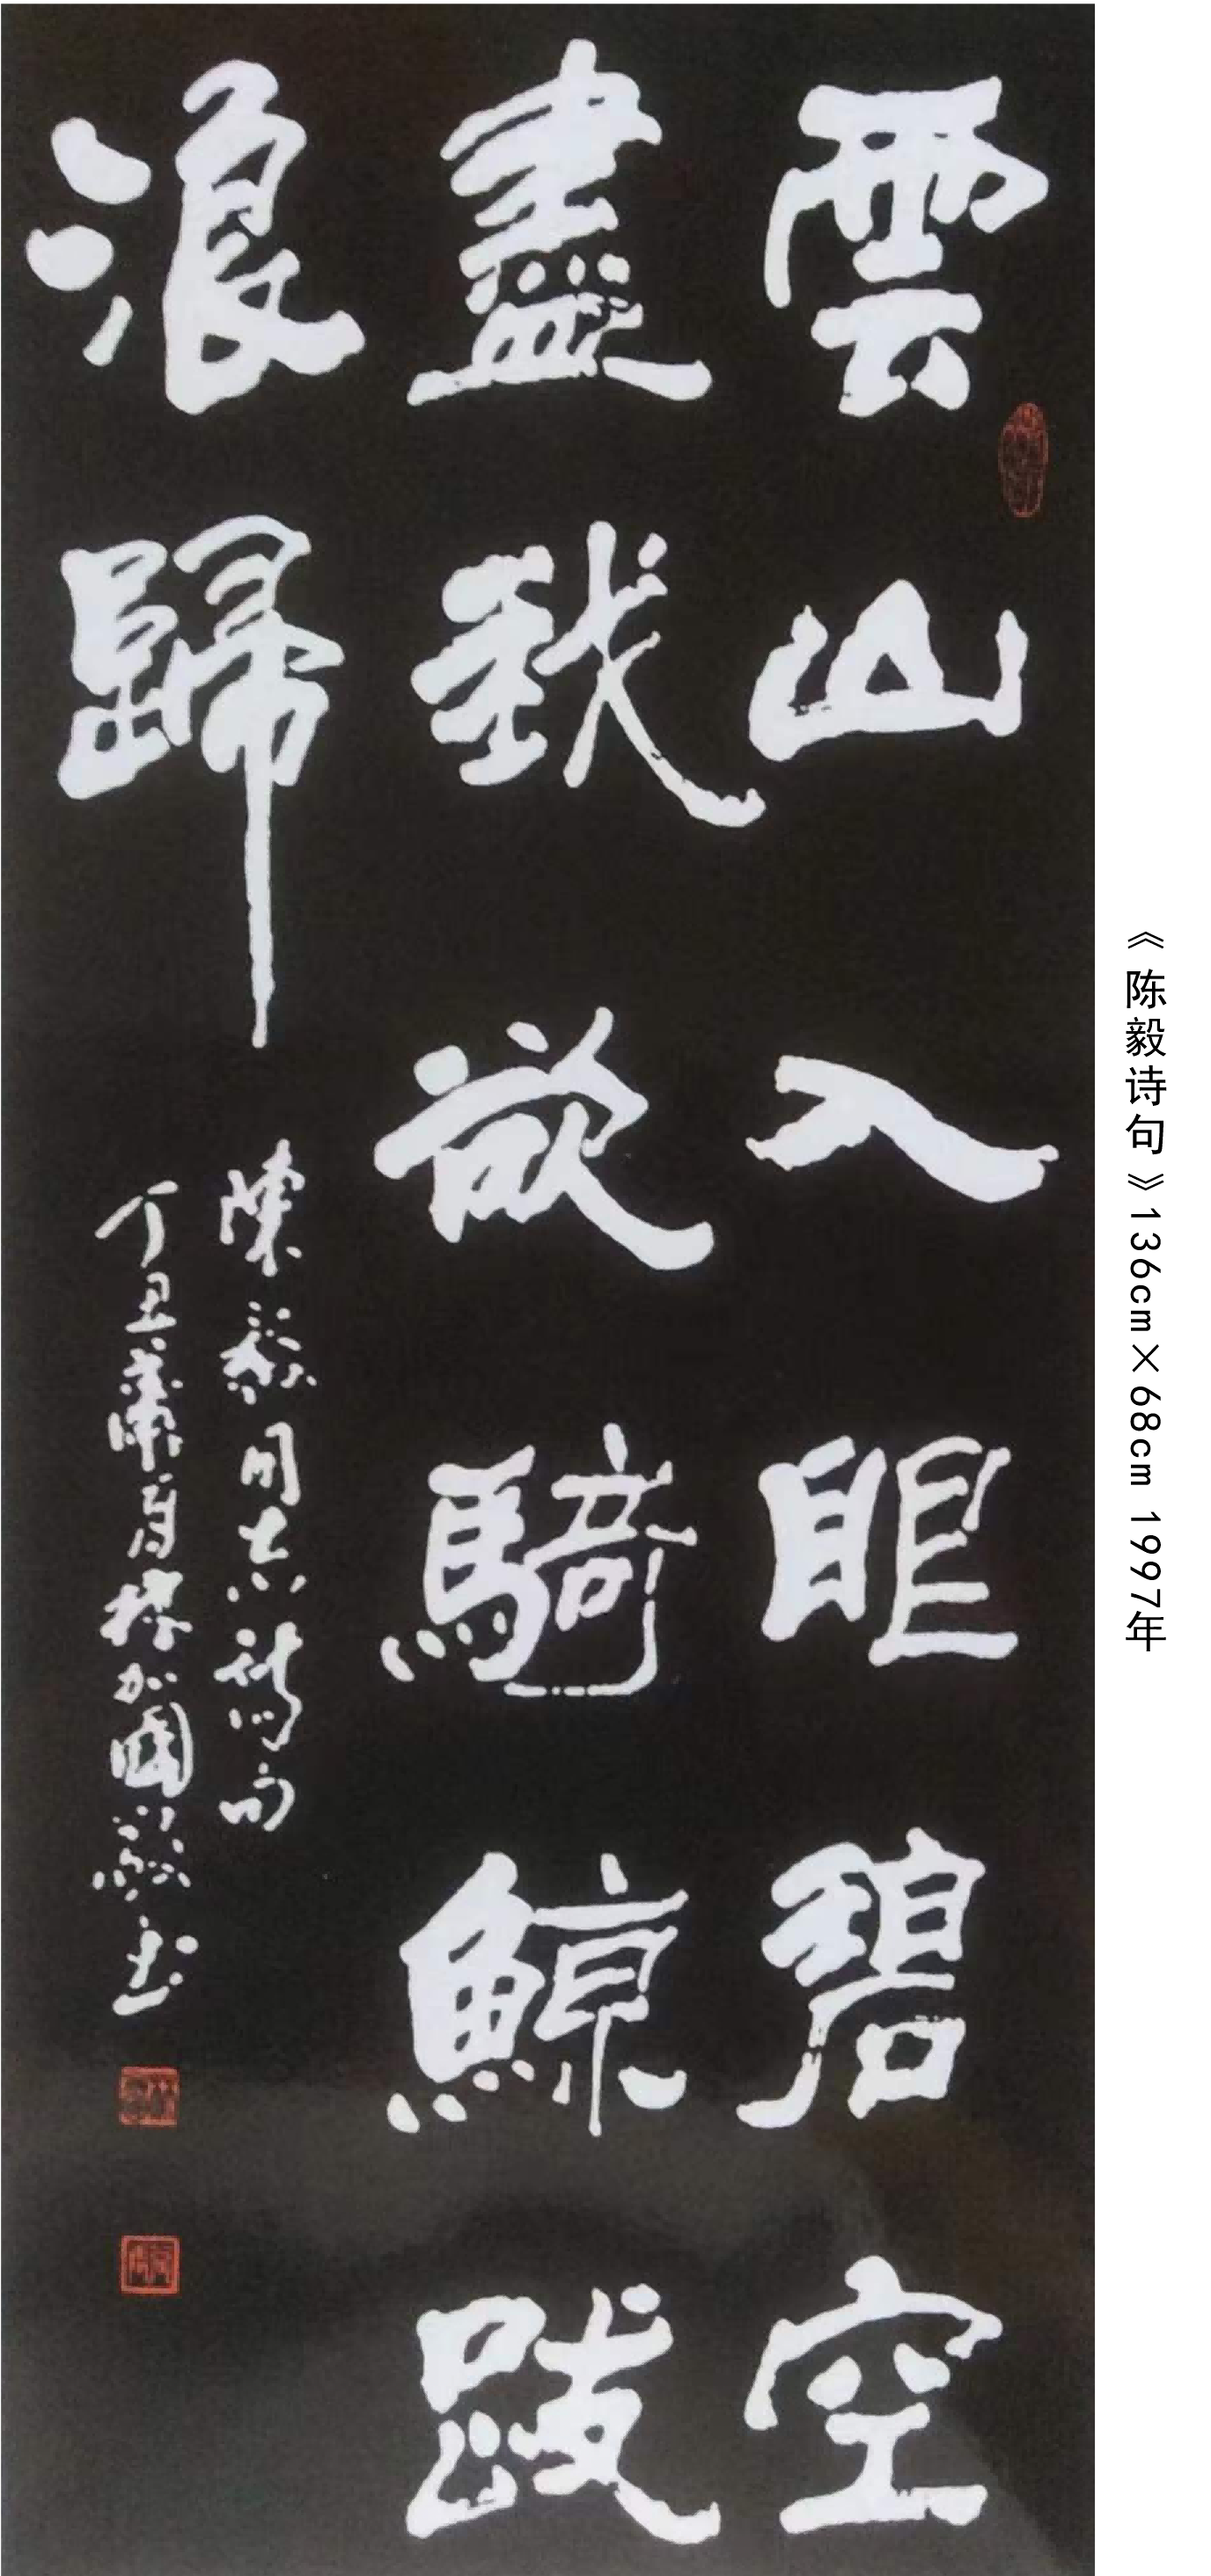 雲山入眼碧空
盡我欲騎鯨跋
浪歸
陳毅同志詩句
丁丑
《陈毅诗句》136cm×68cm 1997年